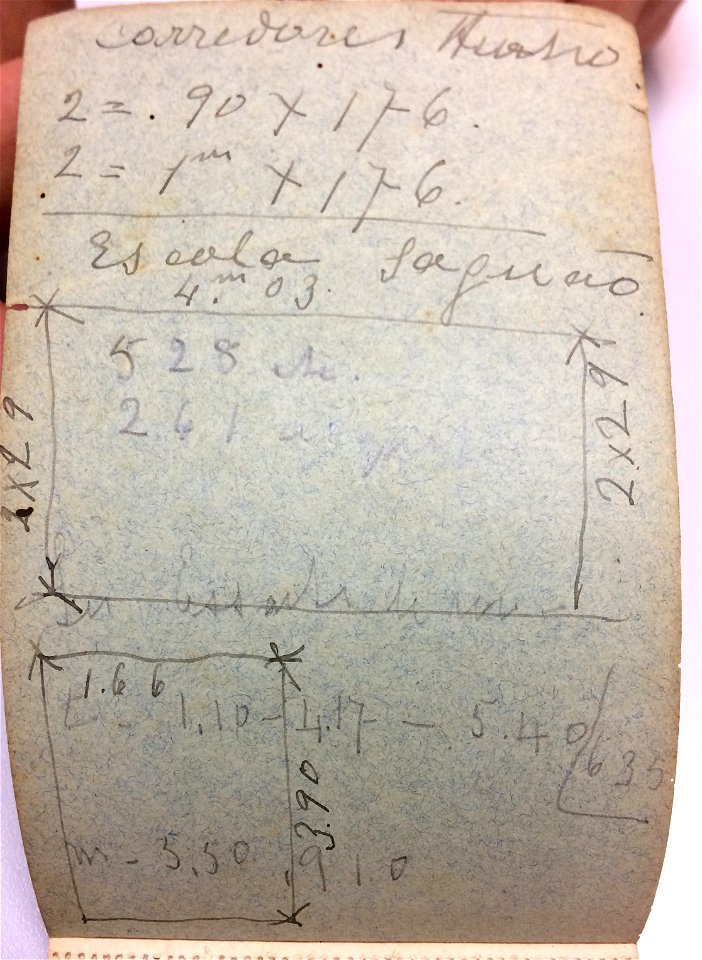 corredores
2 = . 90 X 176.
2 = 1m X 176.
Escola Saguão
4.m 03.
528
261
2x29
2x29
1.66
1,10 - 4.17 - 5.40
635
3.90
m - 3,50 9 1.0